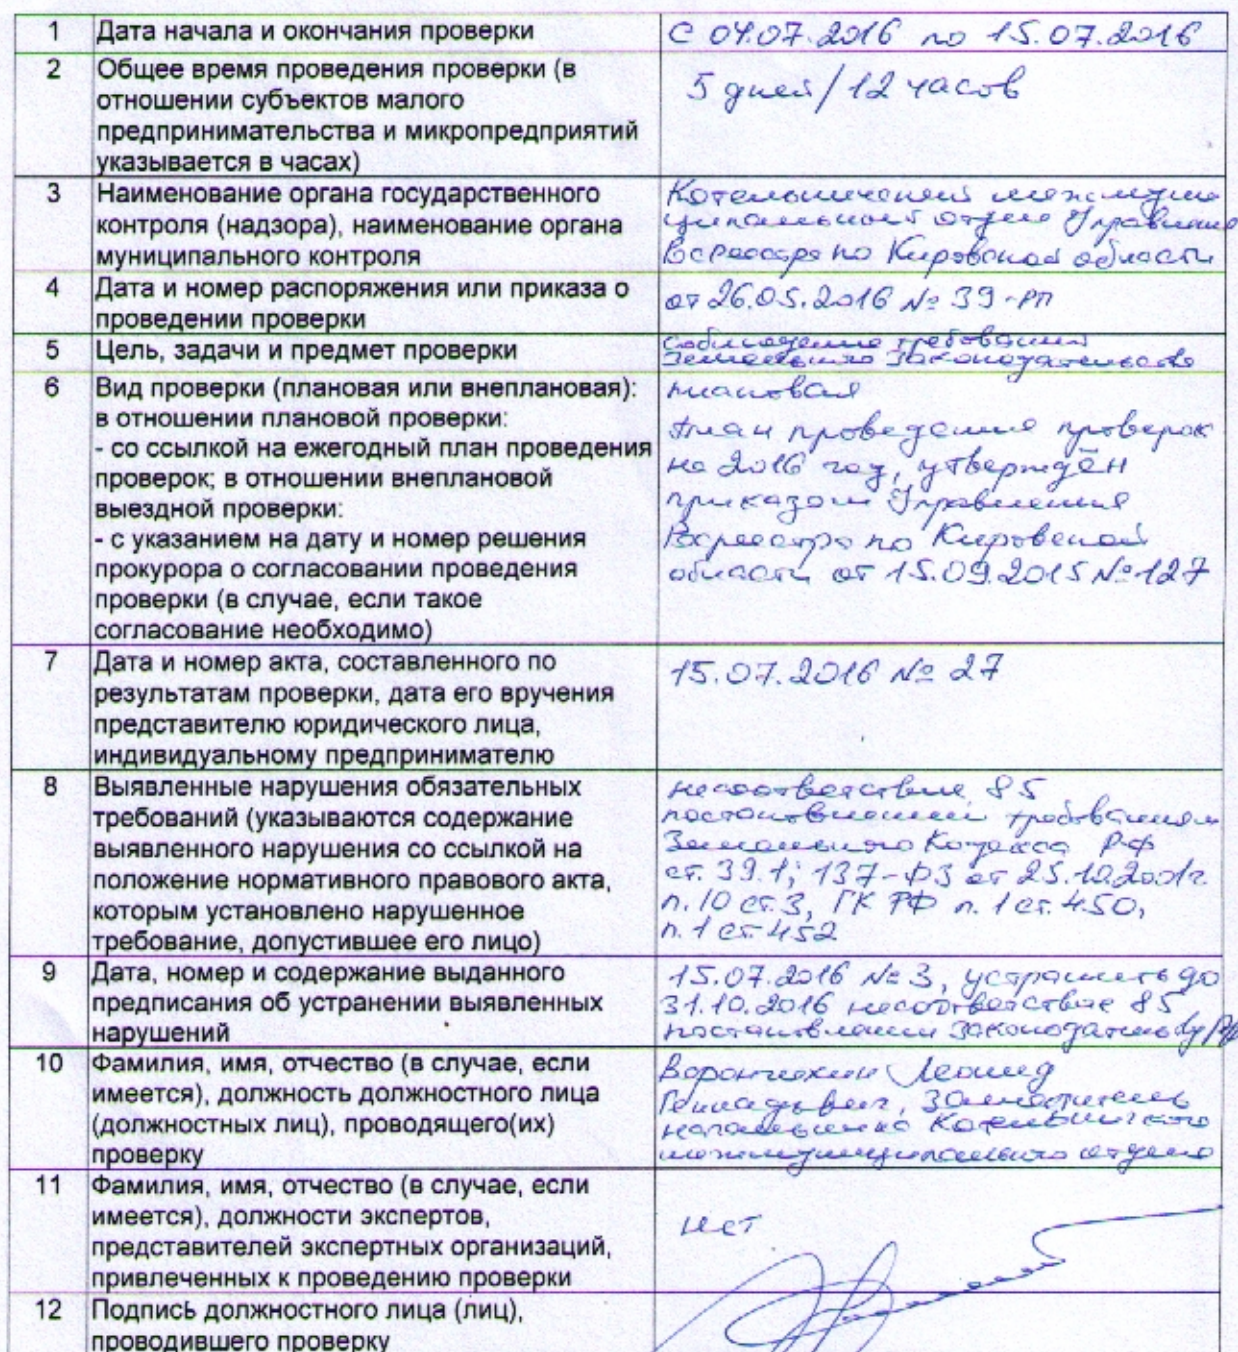 1 Дата начала и окончания проверки с 04.07.2016 по 15.07.2016
2 Общее время проведения проверки (в
отношении субъектов малого
предпринимательства и микропредприятий
указывается в часах)
5 дней/12 часов
3 Наименование органа государственного
контроля (надзора), наименование органа
муниципального контроля
Котельничский межмуни
ципальный отдел Управления
Росреестра по Кировской области
4 Дата и номер распоряжения или приказа о
проведении проверки
от 26.05.2016 № 39-рп
5 Цель, задачи и предмет проверки
Соблюдение требований
Земельного законодательства
6 Вид проверки (плановая или внеплановая):
в отношении плановой проверки:
- со ссылкой на ежегодный план проведения
проверок; в отношении внеплановой
выездной проверки:
- с указанием на дату и номер решения
прокурора о согласовании проведения
проверки (в случае, если такое
согласование необходимо)
плановая
План проведения проверок
на 2016 год, утверждён
приказом Управления
Росреестра по Кировской
области от 15.09.2015 № 127
7 Дата и номер акта, составленного по
результатам проверки, дата его вручения
представителю юридического лица,
индивидуальному предпринимателю
15.07.2016 № 27
8 Выявленные нарушения обязательных
требований (указываются содержание
выявленного нарушения со ссылкой на
положение нормативного правового акта,
которым установлено нарушенное
требование, допустившее его лицо)
несоответствие 85
постановлений требованиям
Земельного Кодекса РФ
ст. 39.1; 137-ФЗ от 25.10.2001г
п.10 ст.3, ГК РФ п.1 ст.450,
п.1 ст 452
9 Дата, номер и содержание выданного
предписания об устранении выявленных
нарушений
15.07.2016 № 3, устранить до
31.10.2016 несоответствие 85
постановлений
10 Фамилия, имя, отчество (в случае, если
имеется), должность должностного лица
(должностных лиц), проводящего(их)
проверку
Ворончихин Леонид
Геннадьевич, заместитель
начальника Котельничского
межмуниципального отдела
11 Фамилия, имя, отчество (в случае, если
имеется), должности экспертов,
представителей экспертных организаций,
привлеченных к проведению проверки
нет
12 Подпись должностного лица (лиц),
проводившего проверку